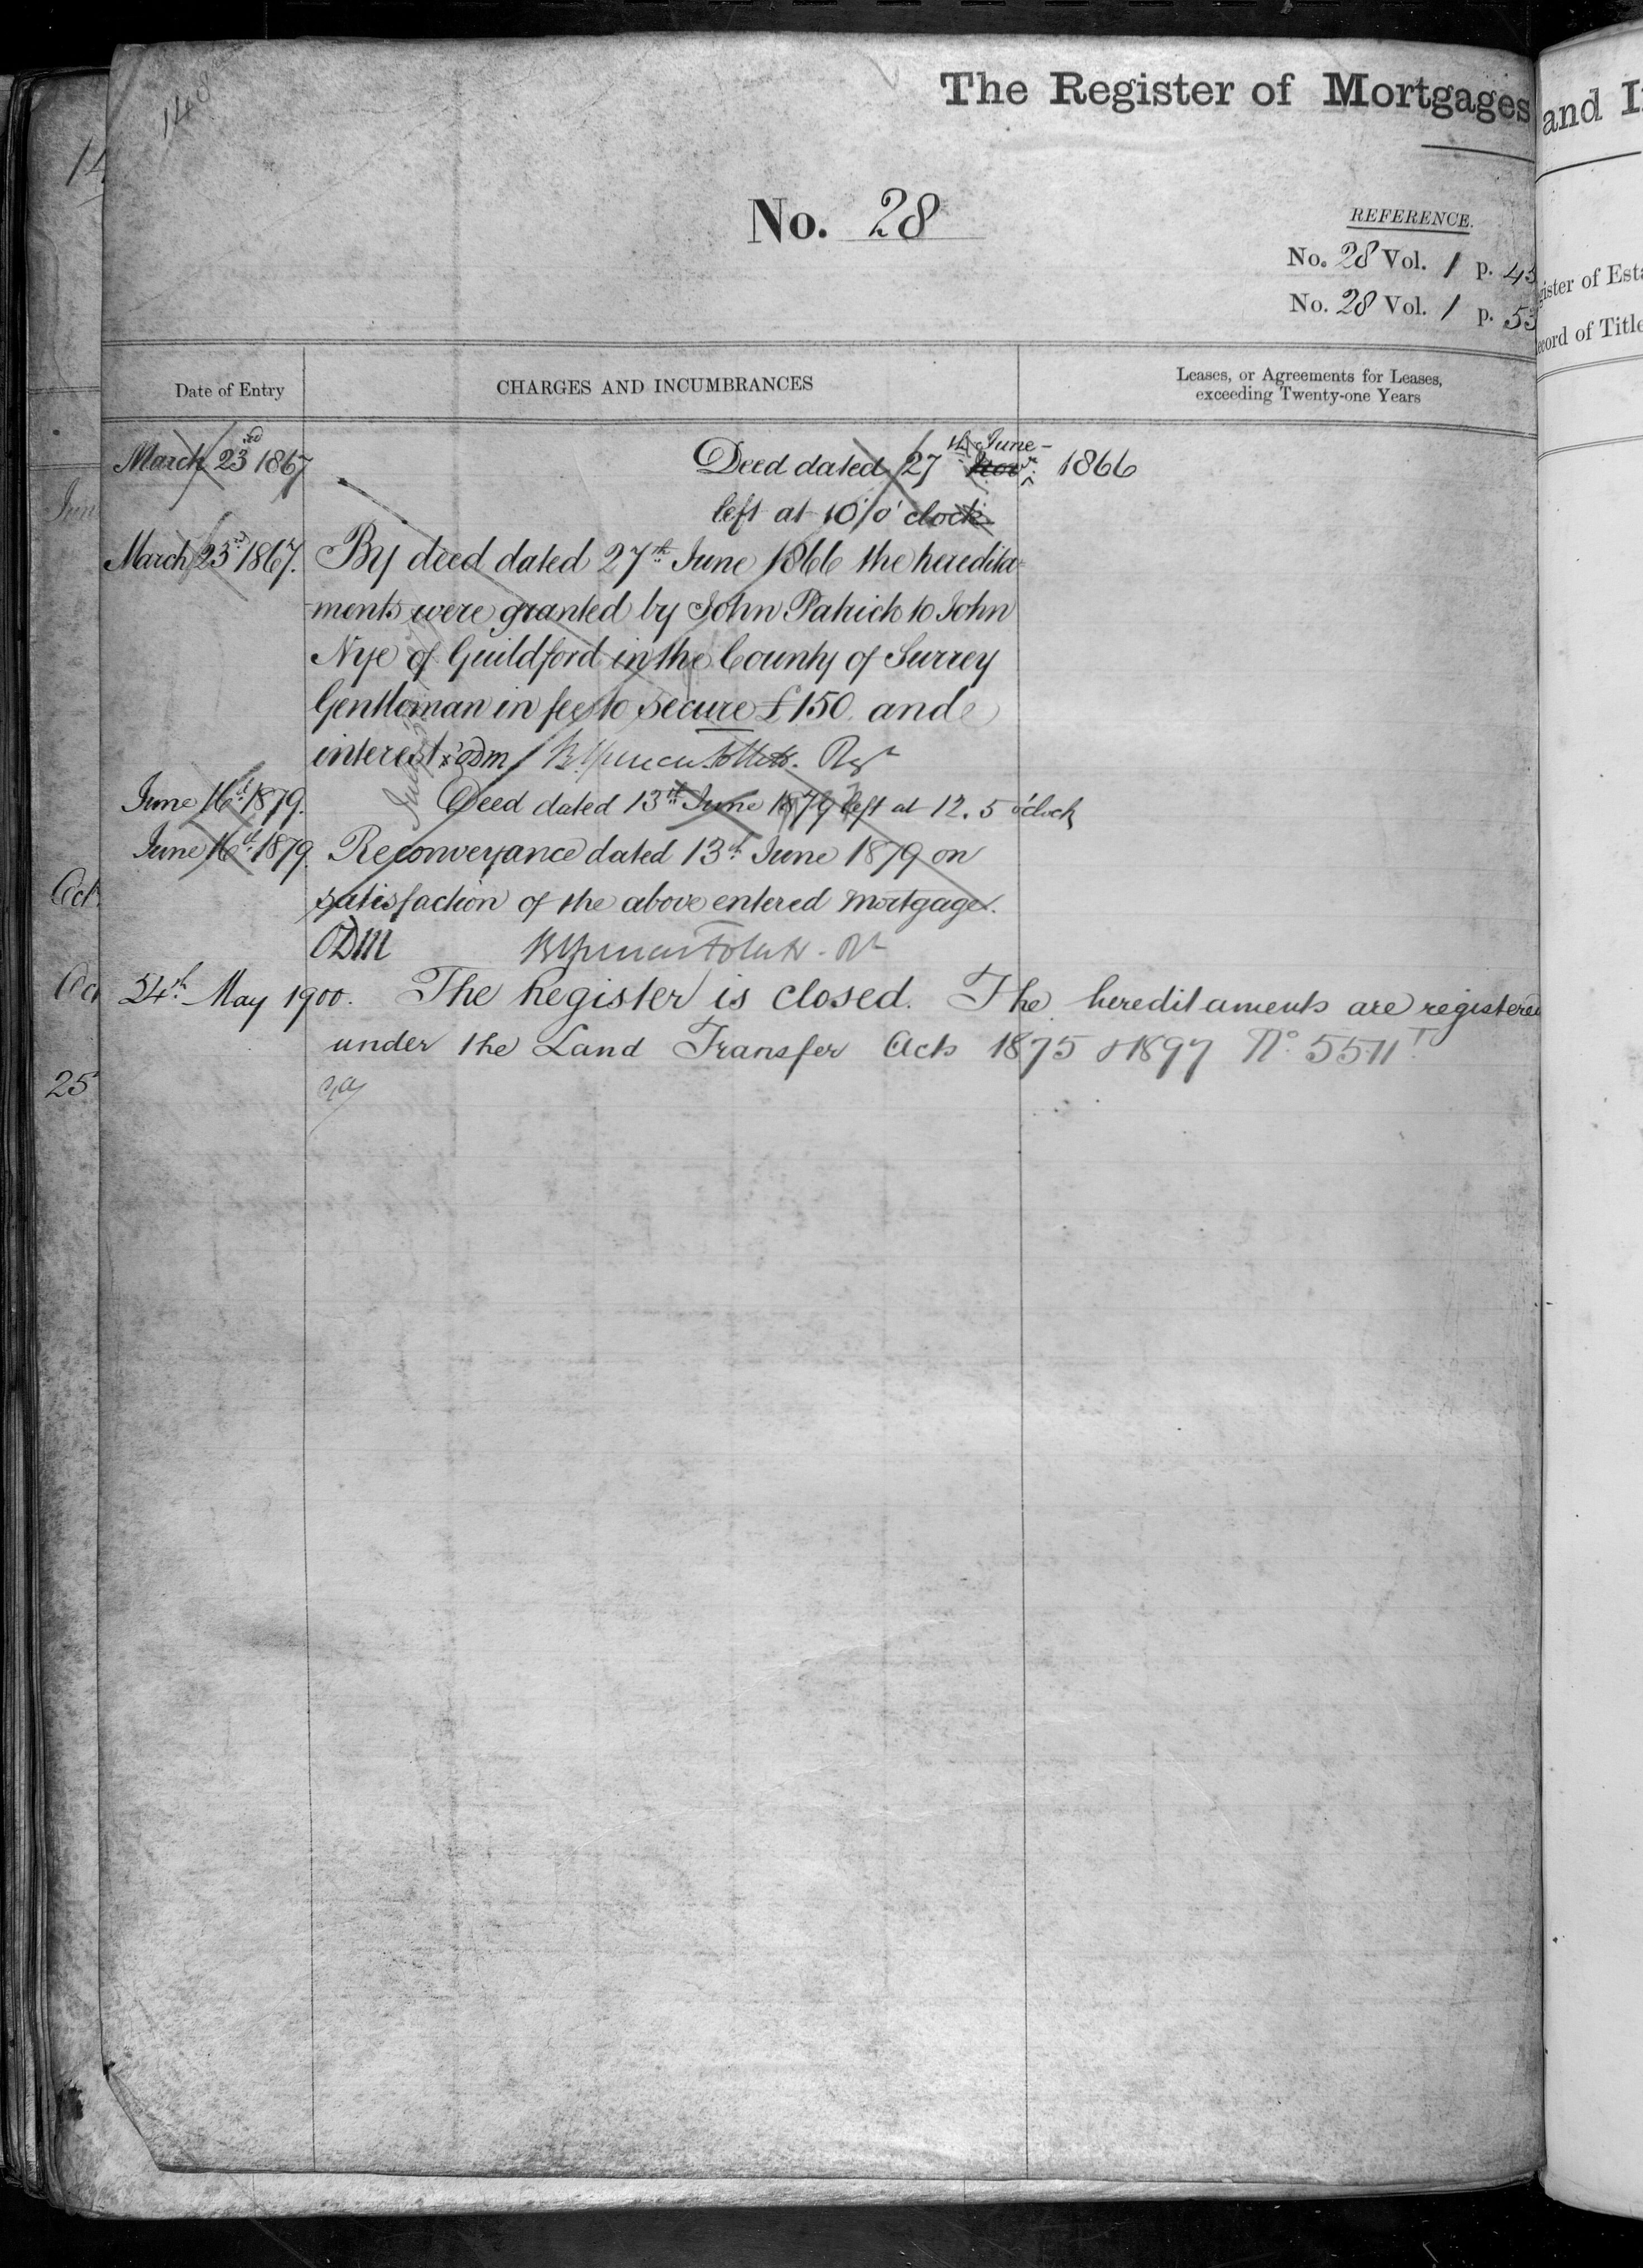 148
The Register of Mortgages
and I
No. 28
REFERENCE.
No. 28 Vol. 1 p. 43
No. 28 Vol. 1 p. 53
ister of Esta
ecord of Title
Date of Entry
CHARGES AND INCUMBRANCES
Leases, or Agreements for Leases,
exceeding Twenty-one Years
March 23rd 1867
Deed dated 27th Novr. June 1866
left at 10 o'clock
March 23rd 1867. By deed dated 27th June 1866 the heredita-
ments were granted by John Patrick to John
Nye of Guildford in the County of Surrey
Gentleman in fee to secure £150 and
interest ODM Rgr
June 16th 1879. Deed dated 13th June 1879 left at 12.5 o'clock
June 16th 1879. Reconveyance dated 13th June 1879 on
satisfaction of the above entered mortgage.
ODM
24th May 1900. The Register is closed. The hereditaments are registered
under the Land Transfer Acts 1875 & 1897 No. 5511
14
Jun
Oct
Oct
25